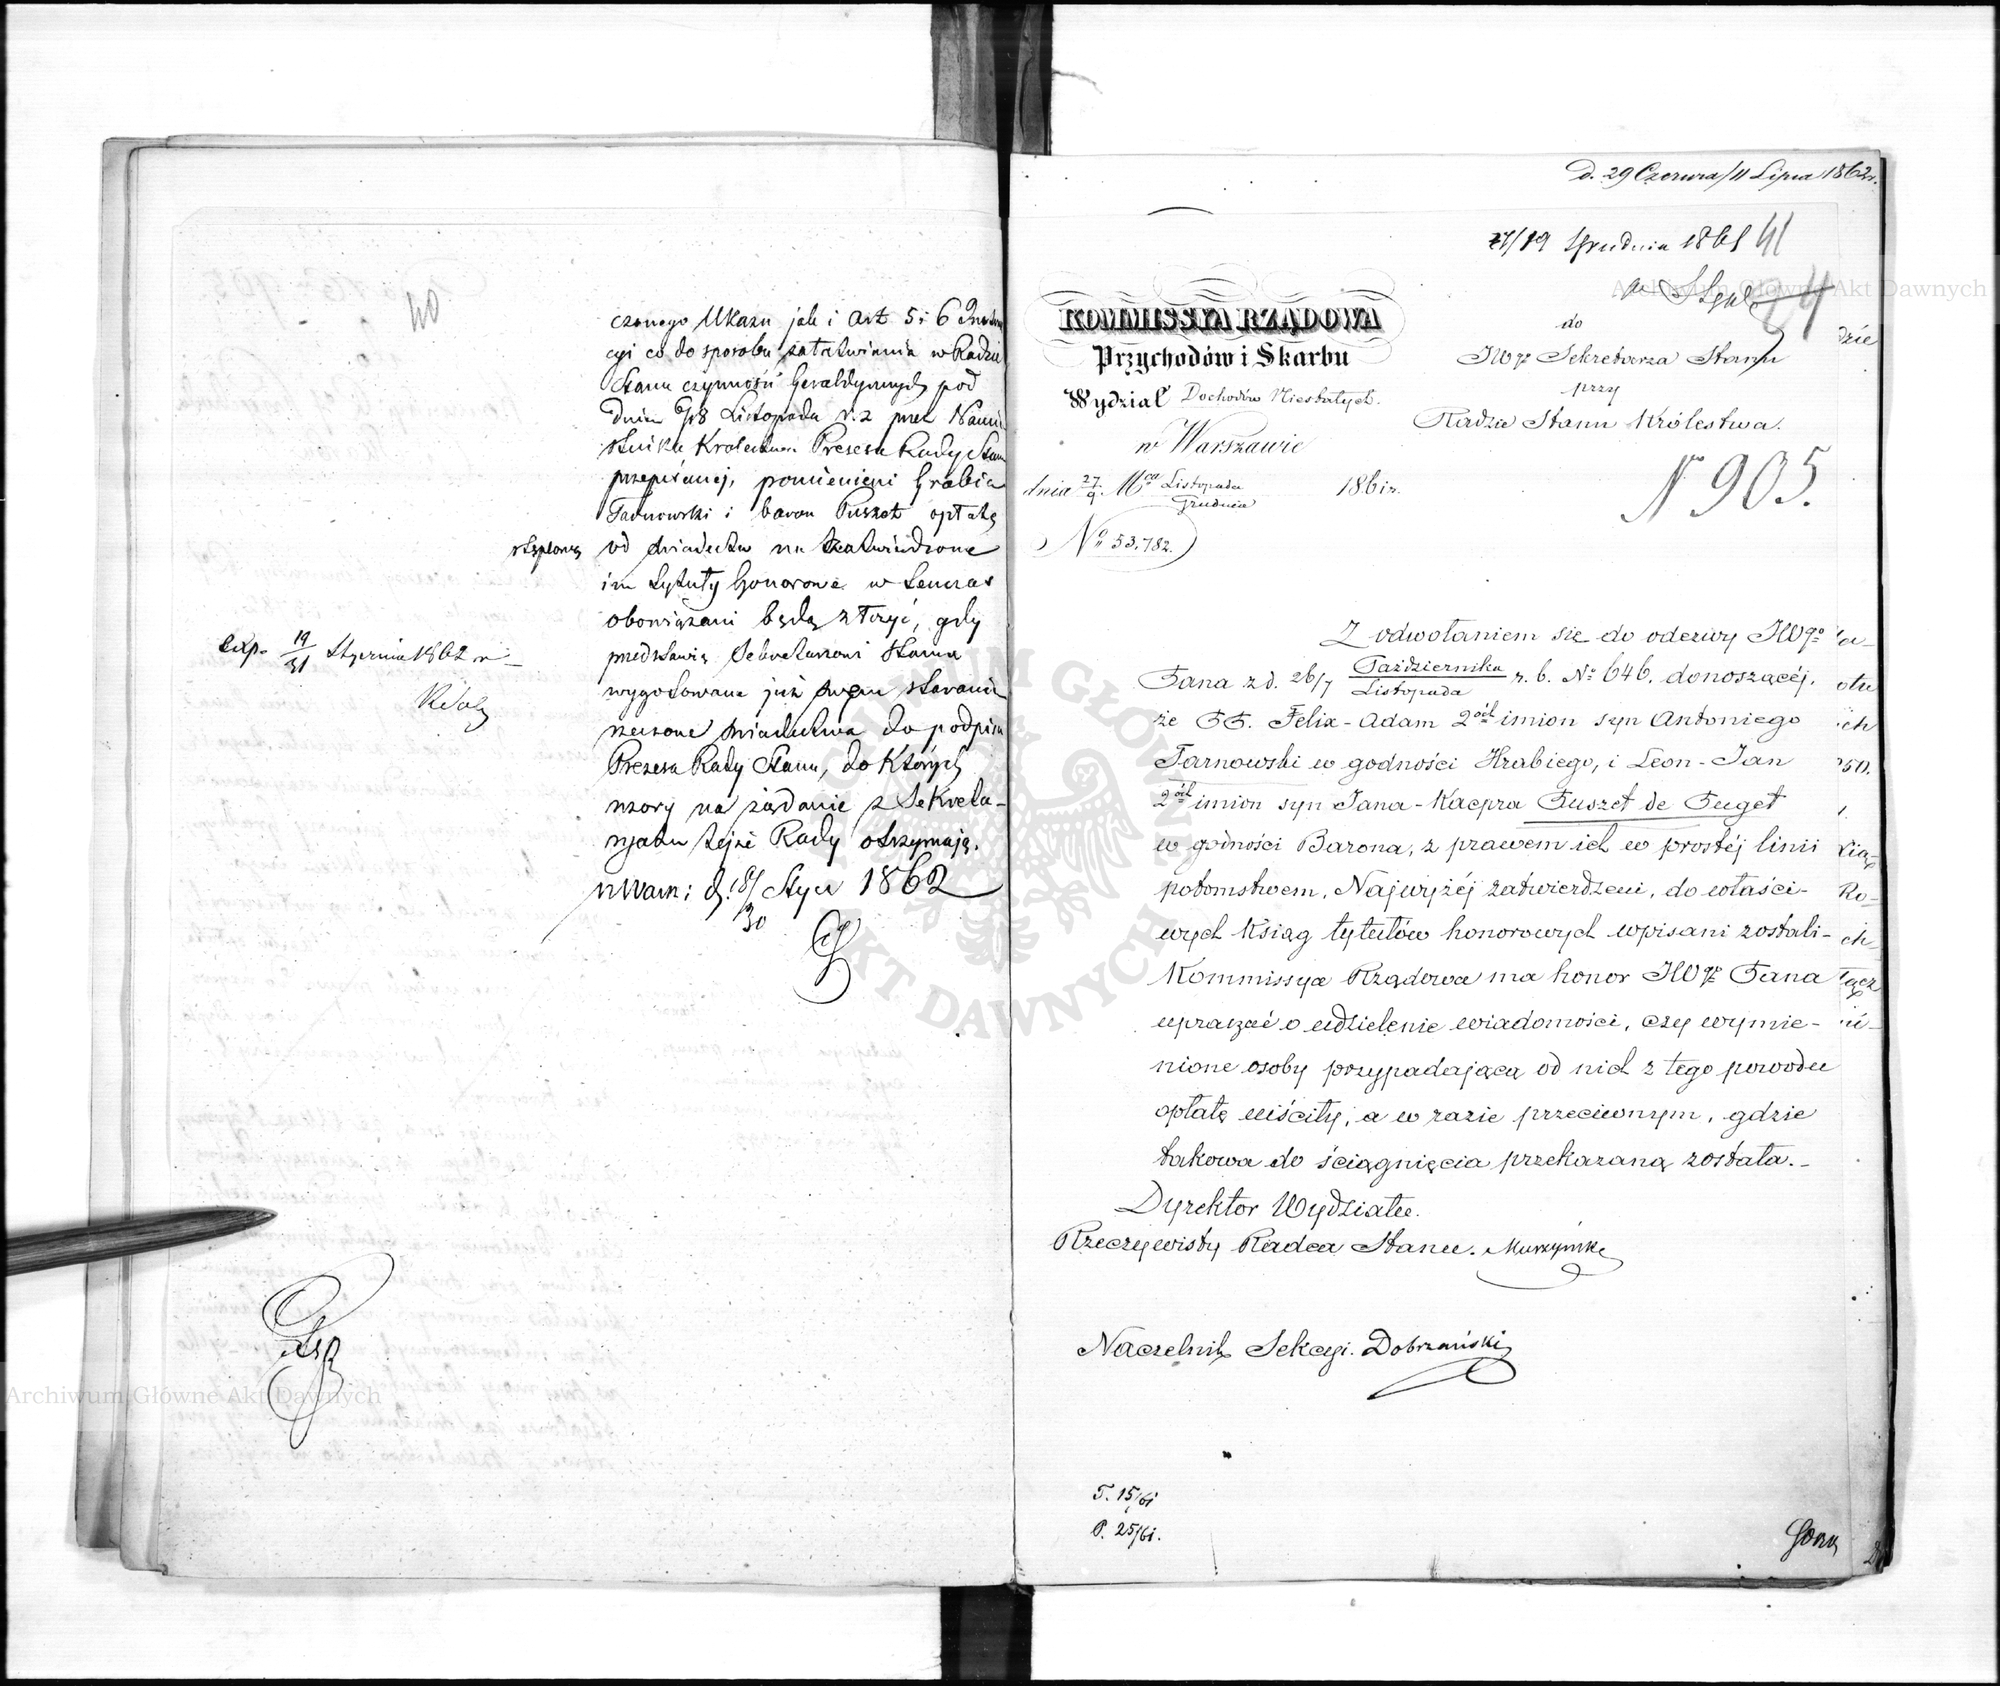 40
czonego Ukazu jak i Art 5 i 6
cyi co do sposobu załatwiania w Radzie
Stanu czynności heraldycznych pod
dniem 6/18 Listopada r. z przez Namie
stnika Królestwa Prezesa Rady Stanu
przepisanej, pomienieni Hrabia
Tarnowski i baron Puszet opłatę
stęplową
od świadectw na zatwierdzone
im tytuły honorowe w tenczas
obowiązani będą złożyć, gdy
przedstawią Sekretarzowi Stanu
wygotowane już swem staraniem
rzeczone świadectwa do podpisu
Prezesa Rady Stanu, do których
wzory na żądanie z Sekreta-
ryatu tejże Rady otrzymają.
w Warsz: d. 18/30 Stycz 1862
exp. 19/31 Stycznia 1862 r
Archiwum Główne Akt Dawnych
D. 29 Czerwca/11 Lipca 1862 r.
7/19 Grudnia 1861
41
Archiwum Główne Akt Dawnych
KOMMISSYA RZĄDOWA
Przychodów i Skarbu
Wydział Dochodów Niestałych.
w Warszawie
dnia 27/9 Mca Listopada/Grudnia 1861 r.
No 53,782.
do
JWgo Sekretarza Stanu
przy
Radzie Stanu Królestwa.
N 905.
Z odwołaniem się do odezwy JWgo
Pana z d. 26/7 Października/Listopada r. b. No 646. donoszącéj,
że PP. Felix-Adam 2ch imion syn Antoniego
Tarnowski w godności Hrabiego, i Leon-Jan
2ch imion syn Jana-Kacpra Puszet de Puget
w godności Barona, z prawem ich w prostéj linii
potomstwem, Najwyżéj zatwierdzeni, do właści-
wych Ksiąg tytułów honorowych wpisani zostali-
Kommissya Rządowa ma honor JWgo Pana
upraszać o udzielenie wiadomości, czy wymie-
nione osoby przypadającą od nich z tego powodu
opłatę uiściły, a w razie przeciwnym, gdzie
takowa do ściągnięcia przekazaną została.-
Dyrektor Wydziału.
Rzeczywisty Radca Stanu.
Naczelnik Sekcyi. Dobrzański
T. 15/61
P. 25/61.
ARCHIWUM GŁÓWNE AKT DAWNYCH